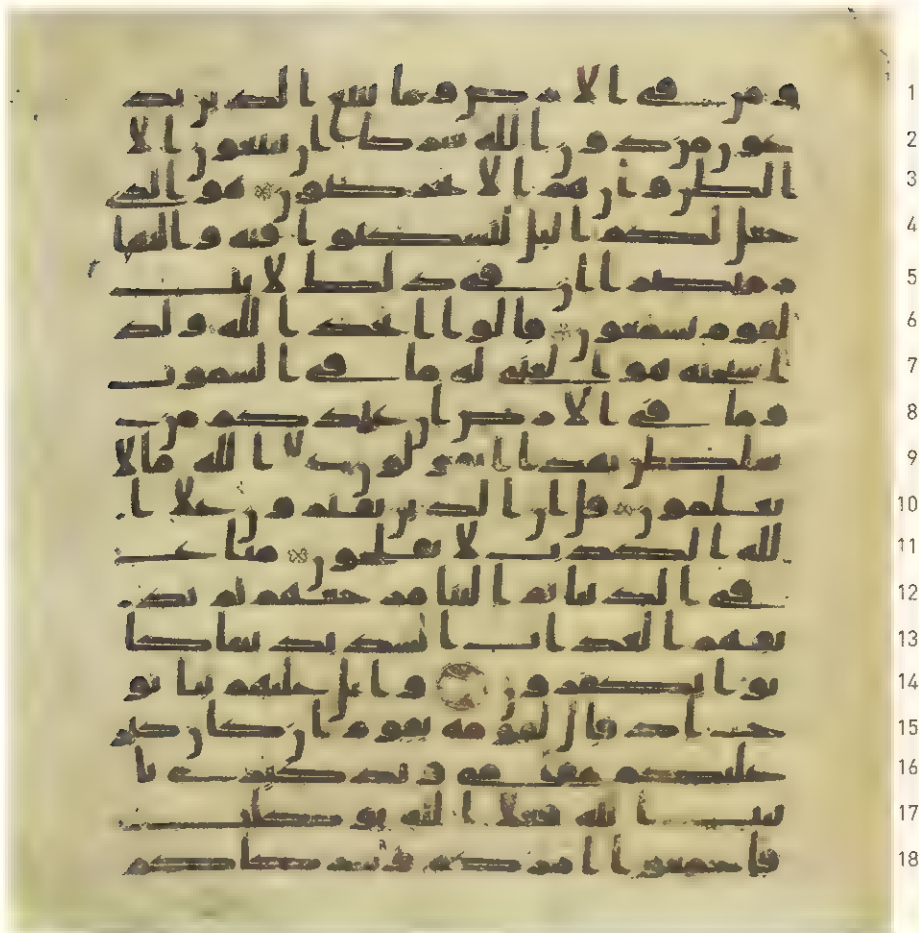 و من في الارض وما يتبع الذين يد 1
عون من دون الله شركا ان يتبعون الا 2
الظن وان هم الا يخرصون هو الذي 3
جعل لكم اليل لتسكنوا فيه والنها 4
ر مبصرا ان في ذلك لايت 5
لقوم يسمعون قالوا اتخذ الله ولد 6
ا سبحنه هو الغني له ما في السموت 7
وما في الارض ان عندكم من 8
سلطن بهذا اتقولون على الله ما لا 9
تعلمون قل ان الذين يفترون على ا 10
لله الكذب لا يفلحون متاع 11
في الدنيا ثم الينا مرجعهم ثم نذ 12
يقهم العذاب الشديد بما كا 13
نوا يكفرون واتل عليهم نبا نو 14
ح اذ قال لقومه يقوم ان كان كبر 15
عليكم مقامي وتذكيري با 16
يت الله فعلى الله توكلت 17
فاجمعوا امركم وشركاكم 18